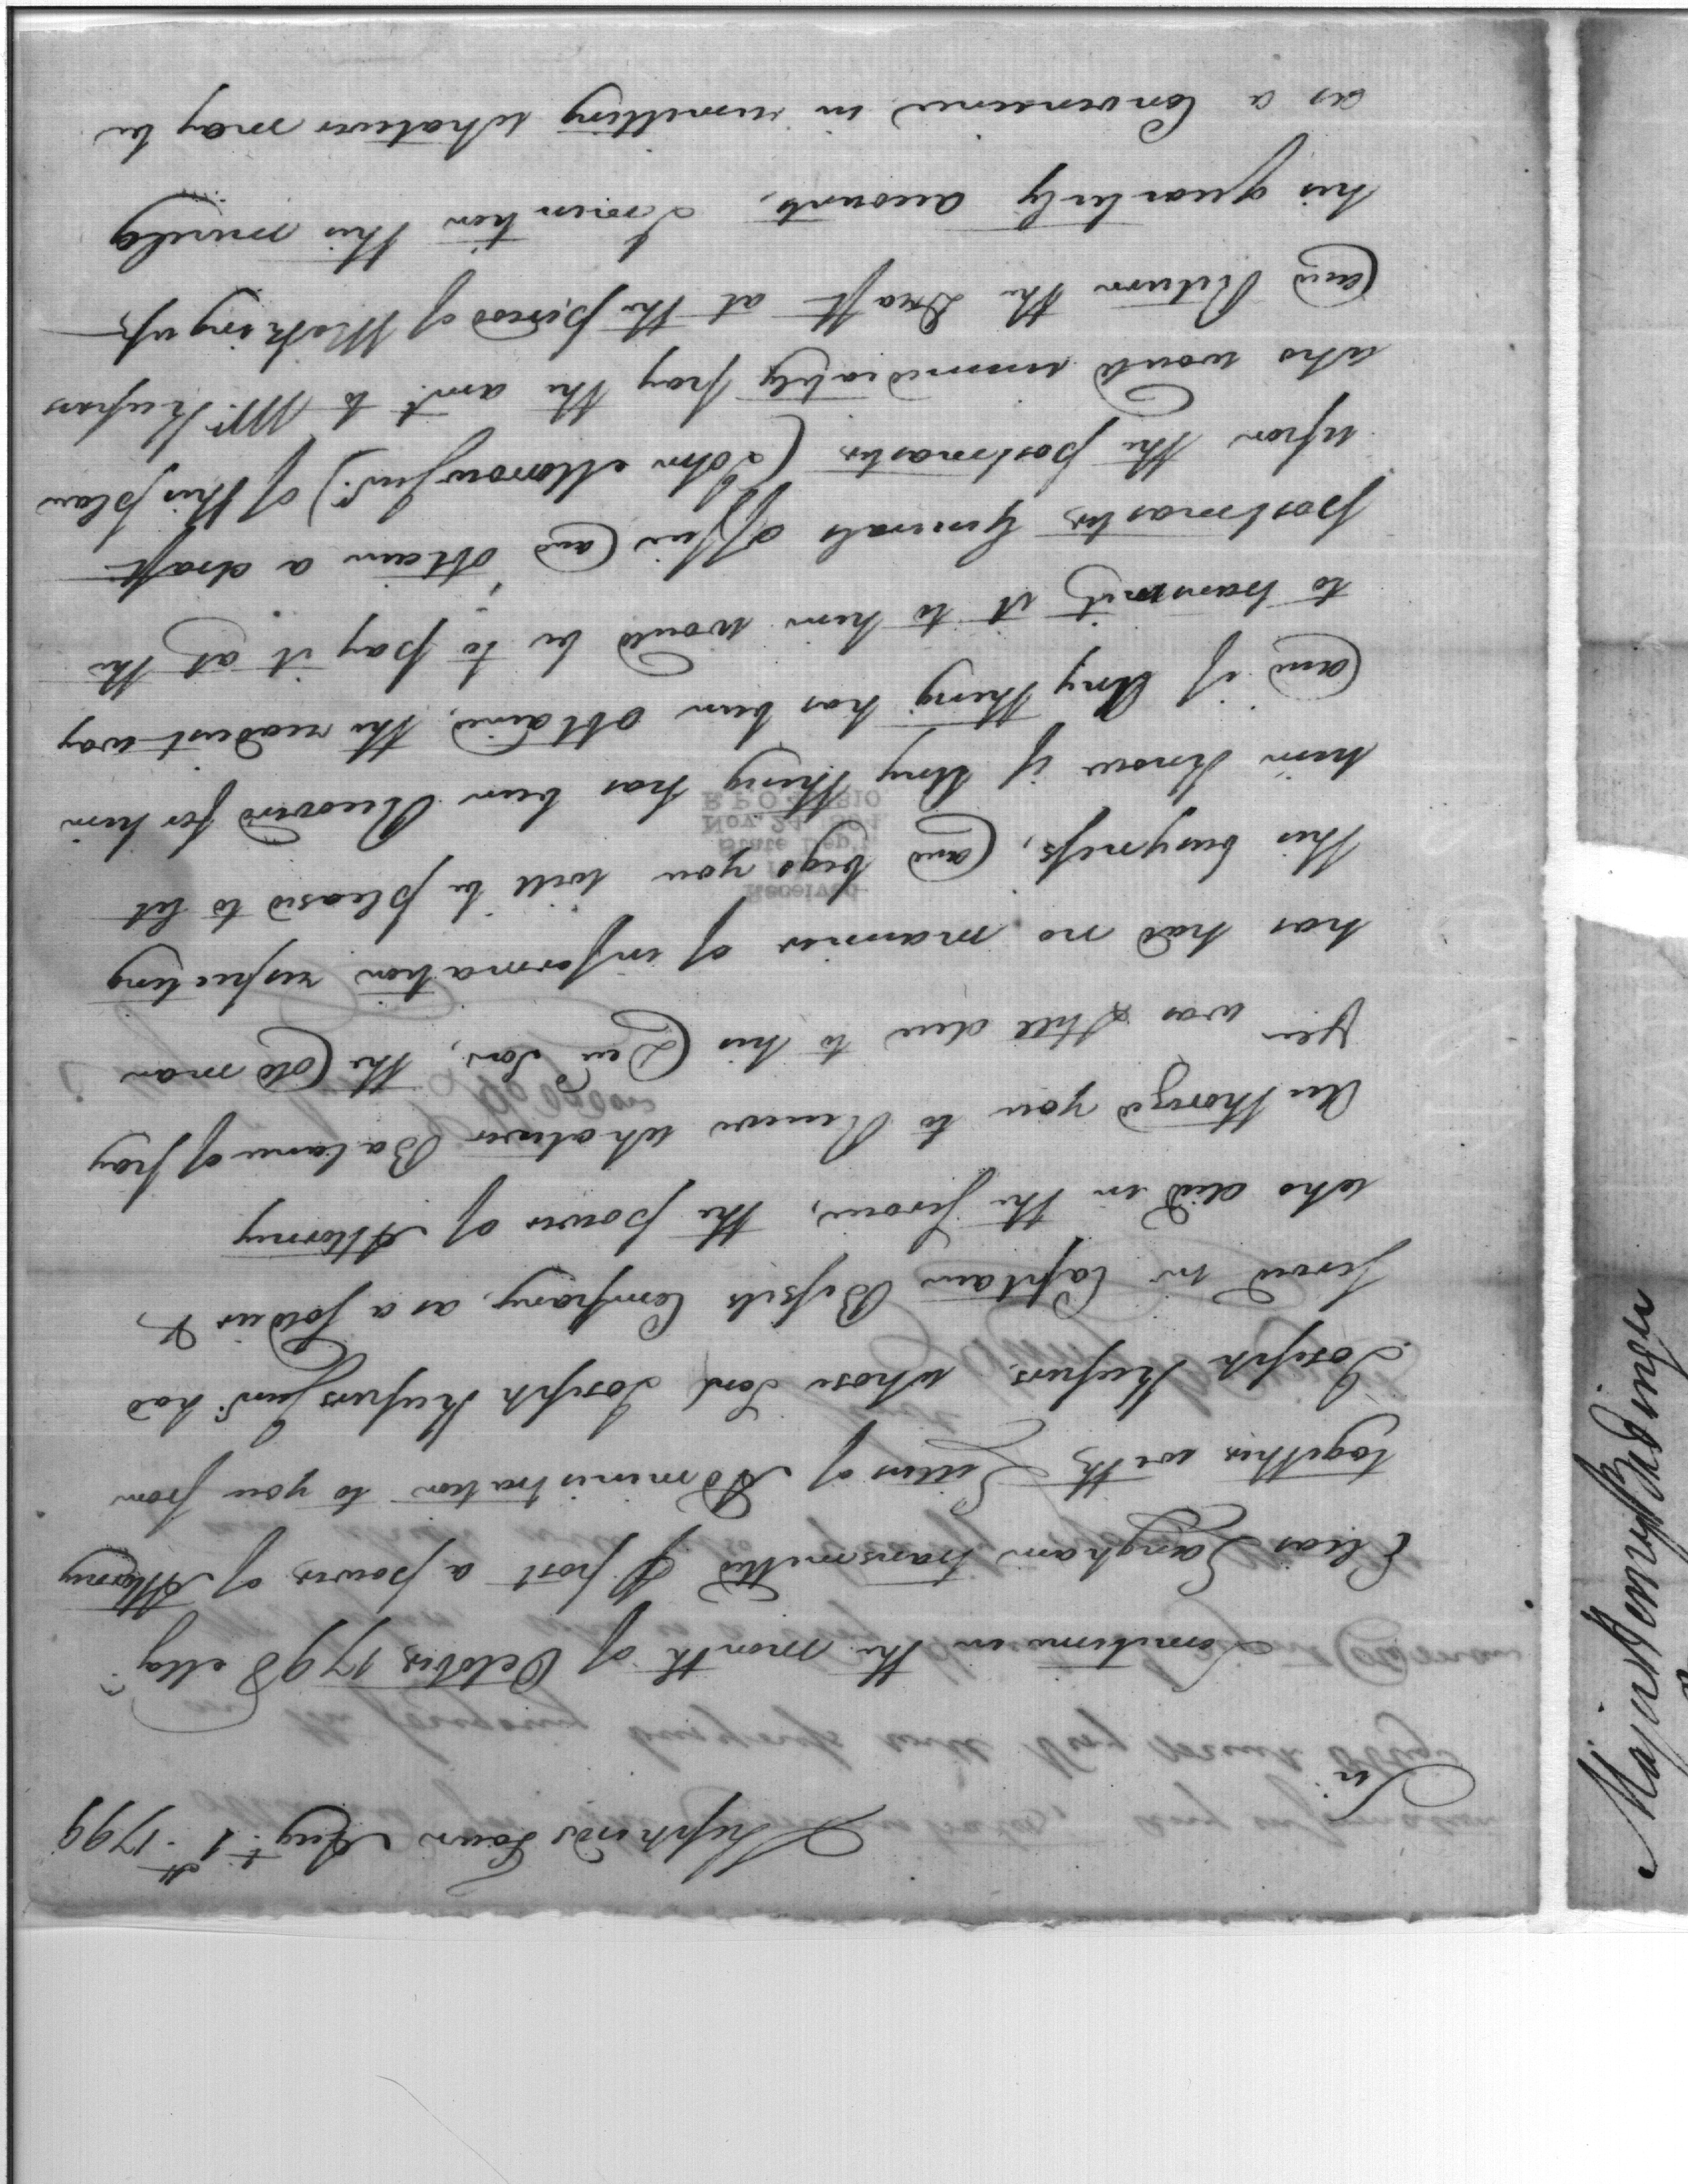 Shepherds Town Augt. 1st. 1799
Sir
Sometime in the month of October 1798 Majr.
Elias Langham transmitted pr post a power of Attorney
together with Letters of Administration to you from
Joseph Keepers, whose Son Joseph Keepers Junr. had
served in Captain Bissels Company, as a soldier &
who died in the service, the power of Attorney
Authorized you to Receive whatever Balance of pay
was still due to his Son, the Old man
has had no manner of information respecting
this busyness, and begs you will be pleased to let
him know if Any thing has been Recovered for him
and if Any thing has been obtained, the readiest way
to transmit it to him would be to pay it at the
postmaster Generals office and obtain a draft
upon the postmaster (John Morrow Junr.) of this place
who would immediately pay the amt. to Mr. Keepers
and Return the Draft at the period of Making up
his quarterly accounts, I mention this merely
as a Convenience in remitting whatever may be
Received
State Dep't
Nov. 24
R.P.O.
Major Henry